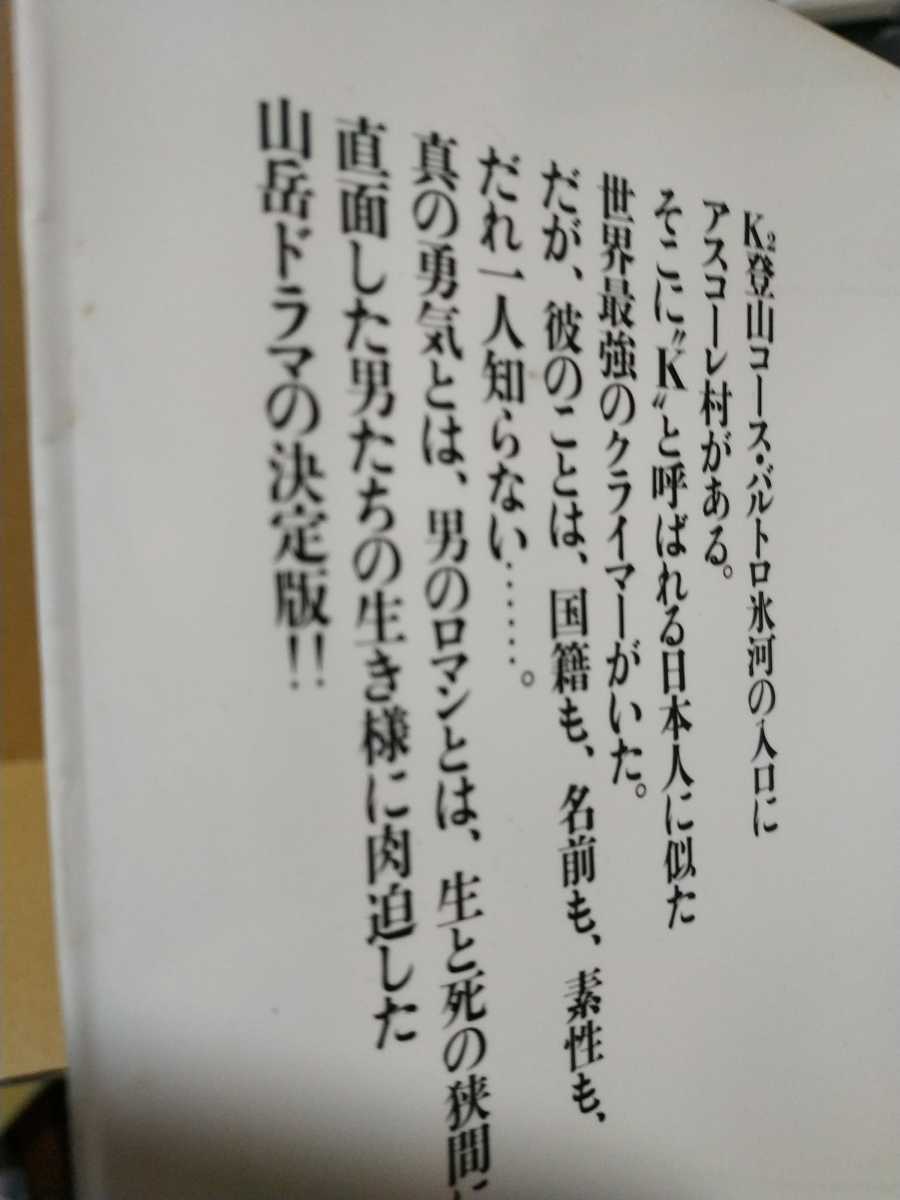 K2登山コース・バルトロ氷河の入口に
アスコーレ村がある。
そこに〝K〟と呼ばれる日本人に似た
世界最強のクライマーがいた。
だが、彼のことは、国籍も、名前も、素性も、
だれ一人知らない……。
真の勇気とは、男のロマンとは、生と死の狭間に
直面した男たちの生き様に肉迫した
山岳ドラマの決定版!!